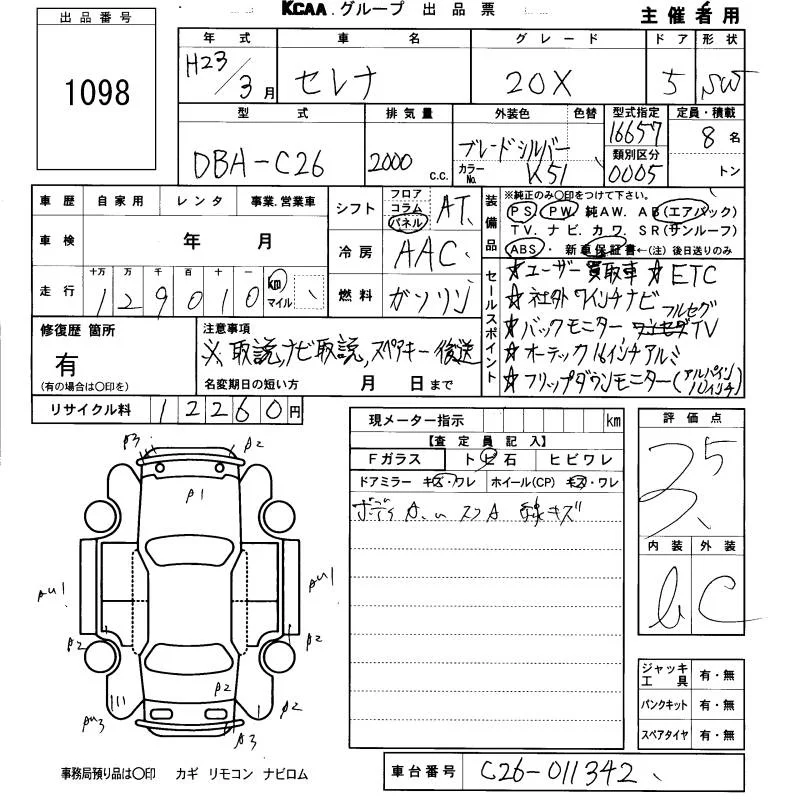 KCAA.グループ 出品票 主催者用
出品番号
1098
年式 車名 グレード ドア 形状
H23/3月 セレナ 20X 5 SW
型式 排気量 外装色 色替 型式指定 定員・積載
DBA-C26 2000c.c. ブレードシルバー 16657 8名
カラーNo. K51 類別区分 0005 トン
車歴 自家用 レンタ 事業.営業車
車検 年 月
走行 十万 万 千 百 十 一
129010 km マイル
シフト フロア コラム パネル AT
冷房 AAC
燃料 ガソリン
装備品 ※純正のみ○印をつけて下さい。
PS PW 純AW. AB(エアバック)
TV. ナビ. カワ. SR(サンルーフ)
ABS・新車保証書←(注)後日送りのみ
セールスポイント
☆ユーザー買取車 ☆ETC
☆社外7インチナビ フルセグ
☆バックモニター ワンセグTV
☆オーテック16インチアルミ
☆フリップダウンモニター(アルパイン10インチ)
修復歴 箇所
有
(有の場合は○印を)
注意事項
※取説,ナビ取説,スペアキー後送
名変期日の短い方 月 日まで
リサイクル料 12260円
現メーター指示 km
【査定員記入】
Fガラス トビ石 ヒビワレ
ドアミラー キズ・ワレ ホイール(CP) キズ・ワレ
評価点
3.5
内装 外装
b C
A3 A2
A1
AU1 AU1
A2 A2
A2
AU3 A2
A3
ジャッキ工具 有・無
パンクキット 有・無
スペアタイヤ 有・無
事務局預り品は○印 カギ リモコン ナビロム
車台番号 C26-011342